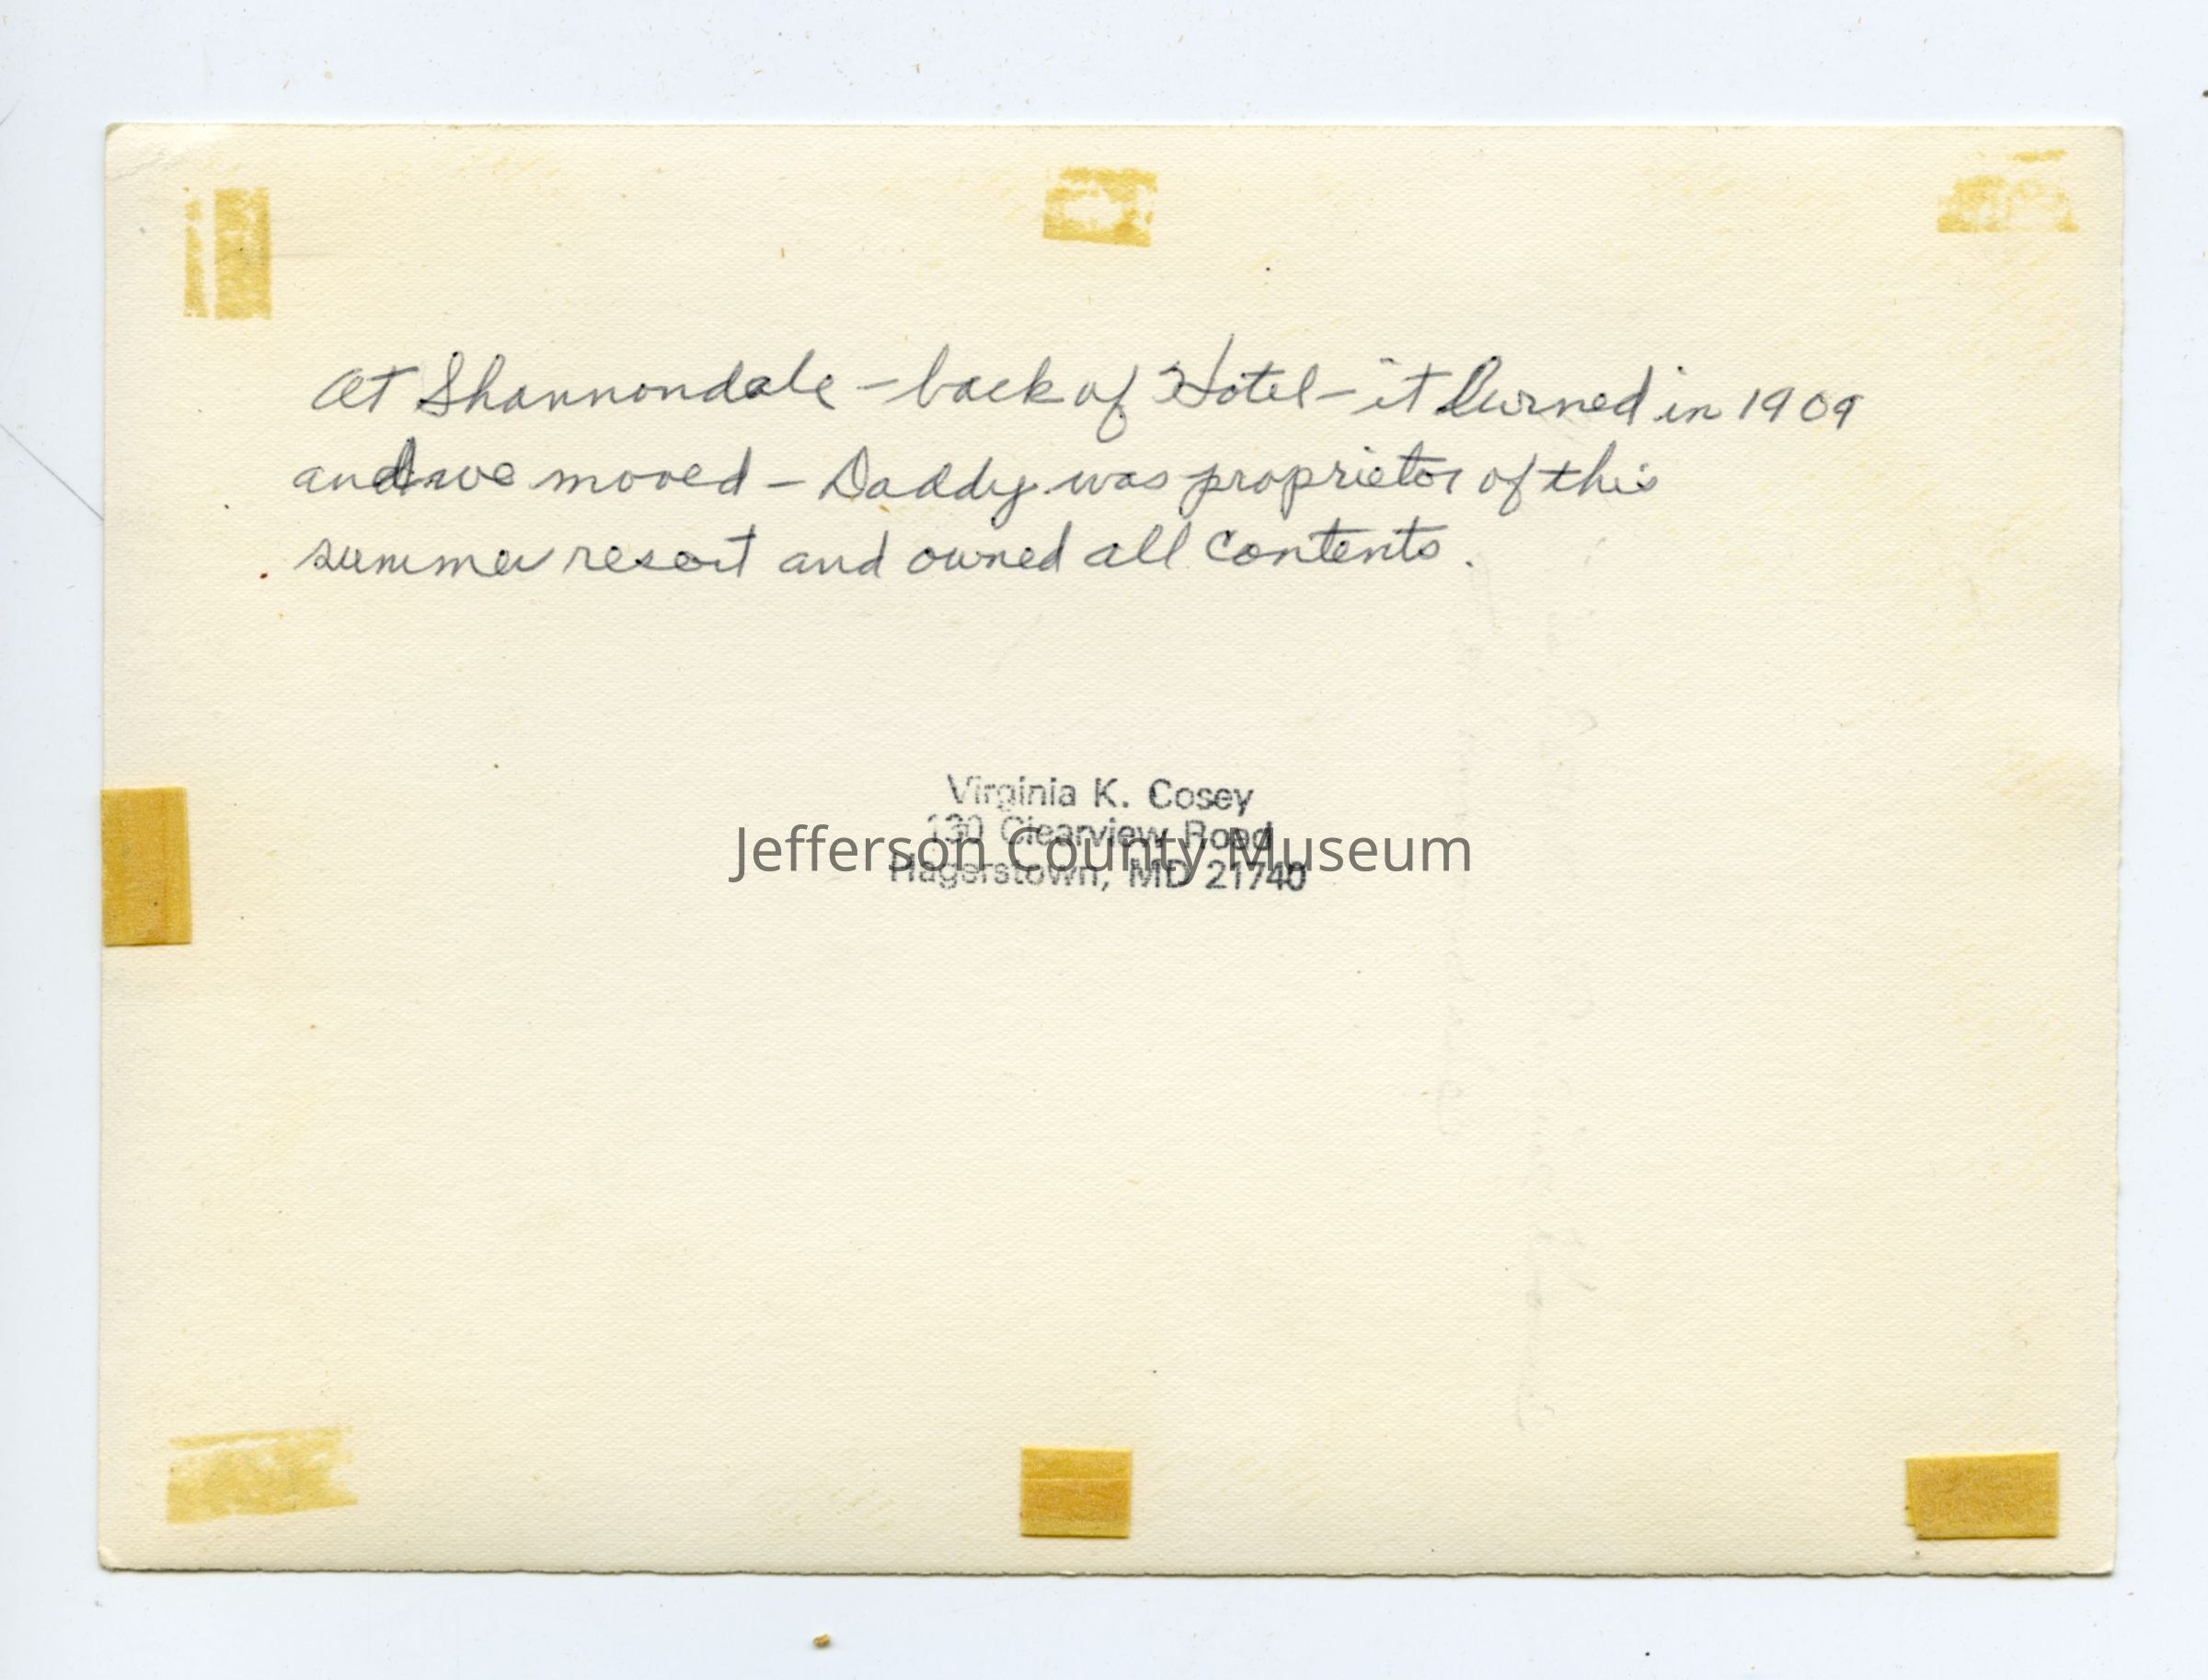 At Shannondale – back of Hotel – it burned in 1909
and we moved – Daddy was proprietor of this
summer resort and owned all contents.
Virginia K. Cosey
130 Clearview Road
Jefferson County Museum
Hagerstown, MD 21740